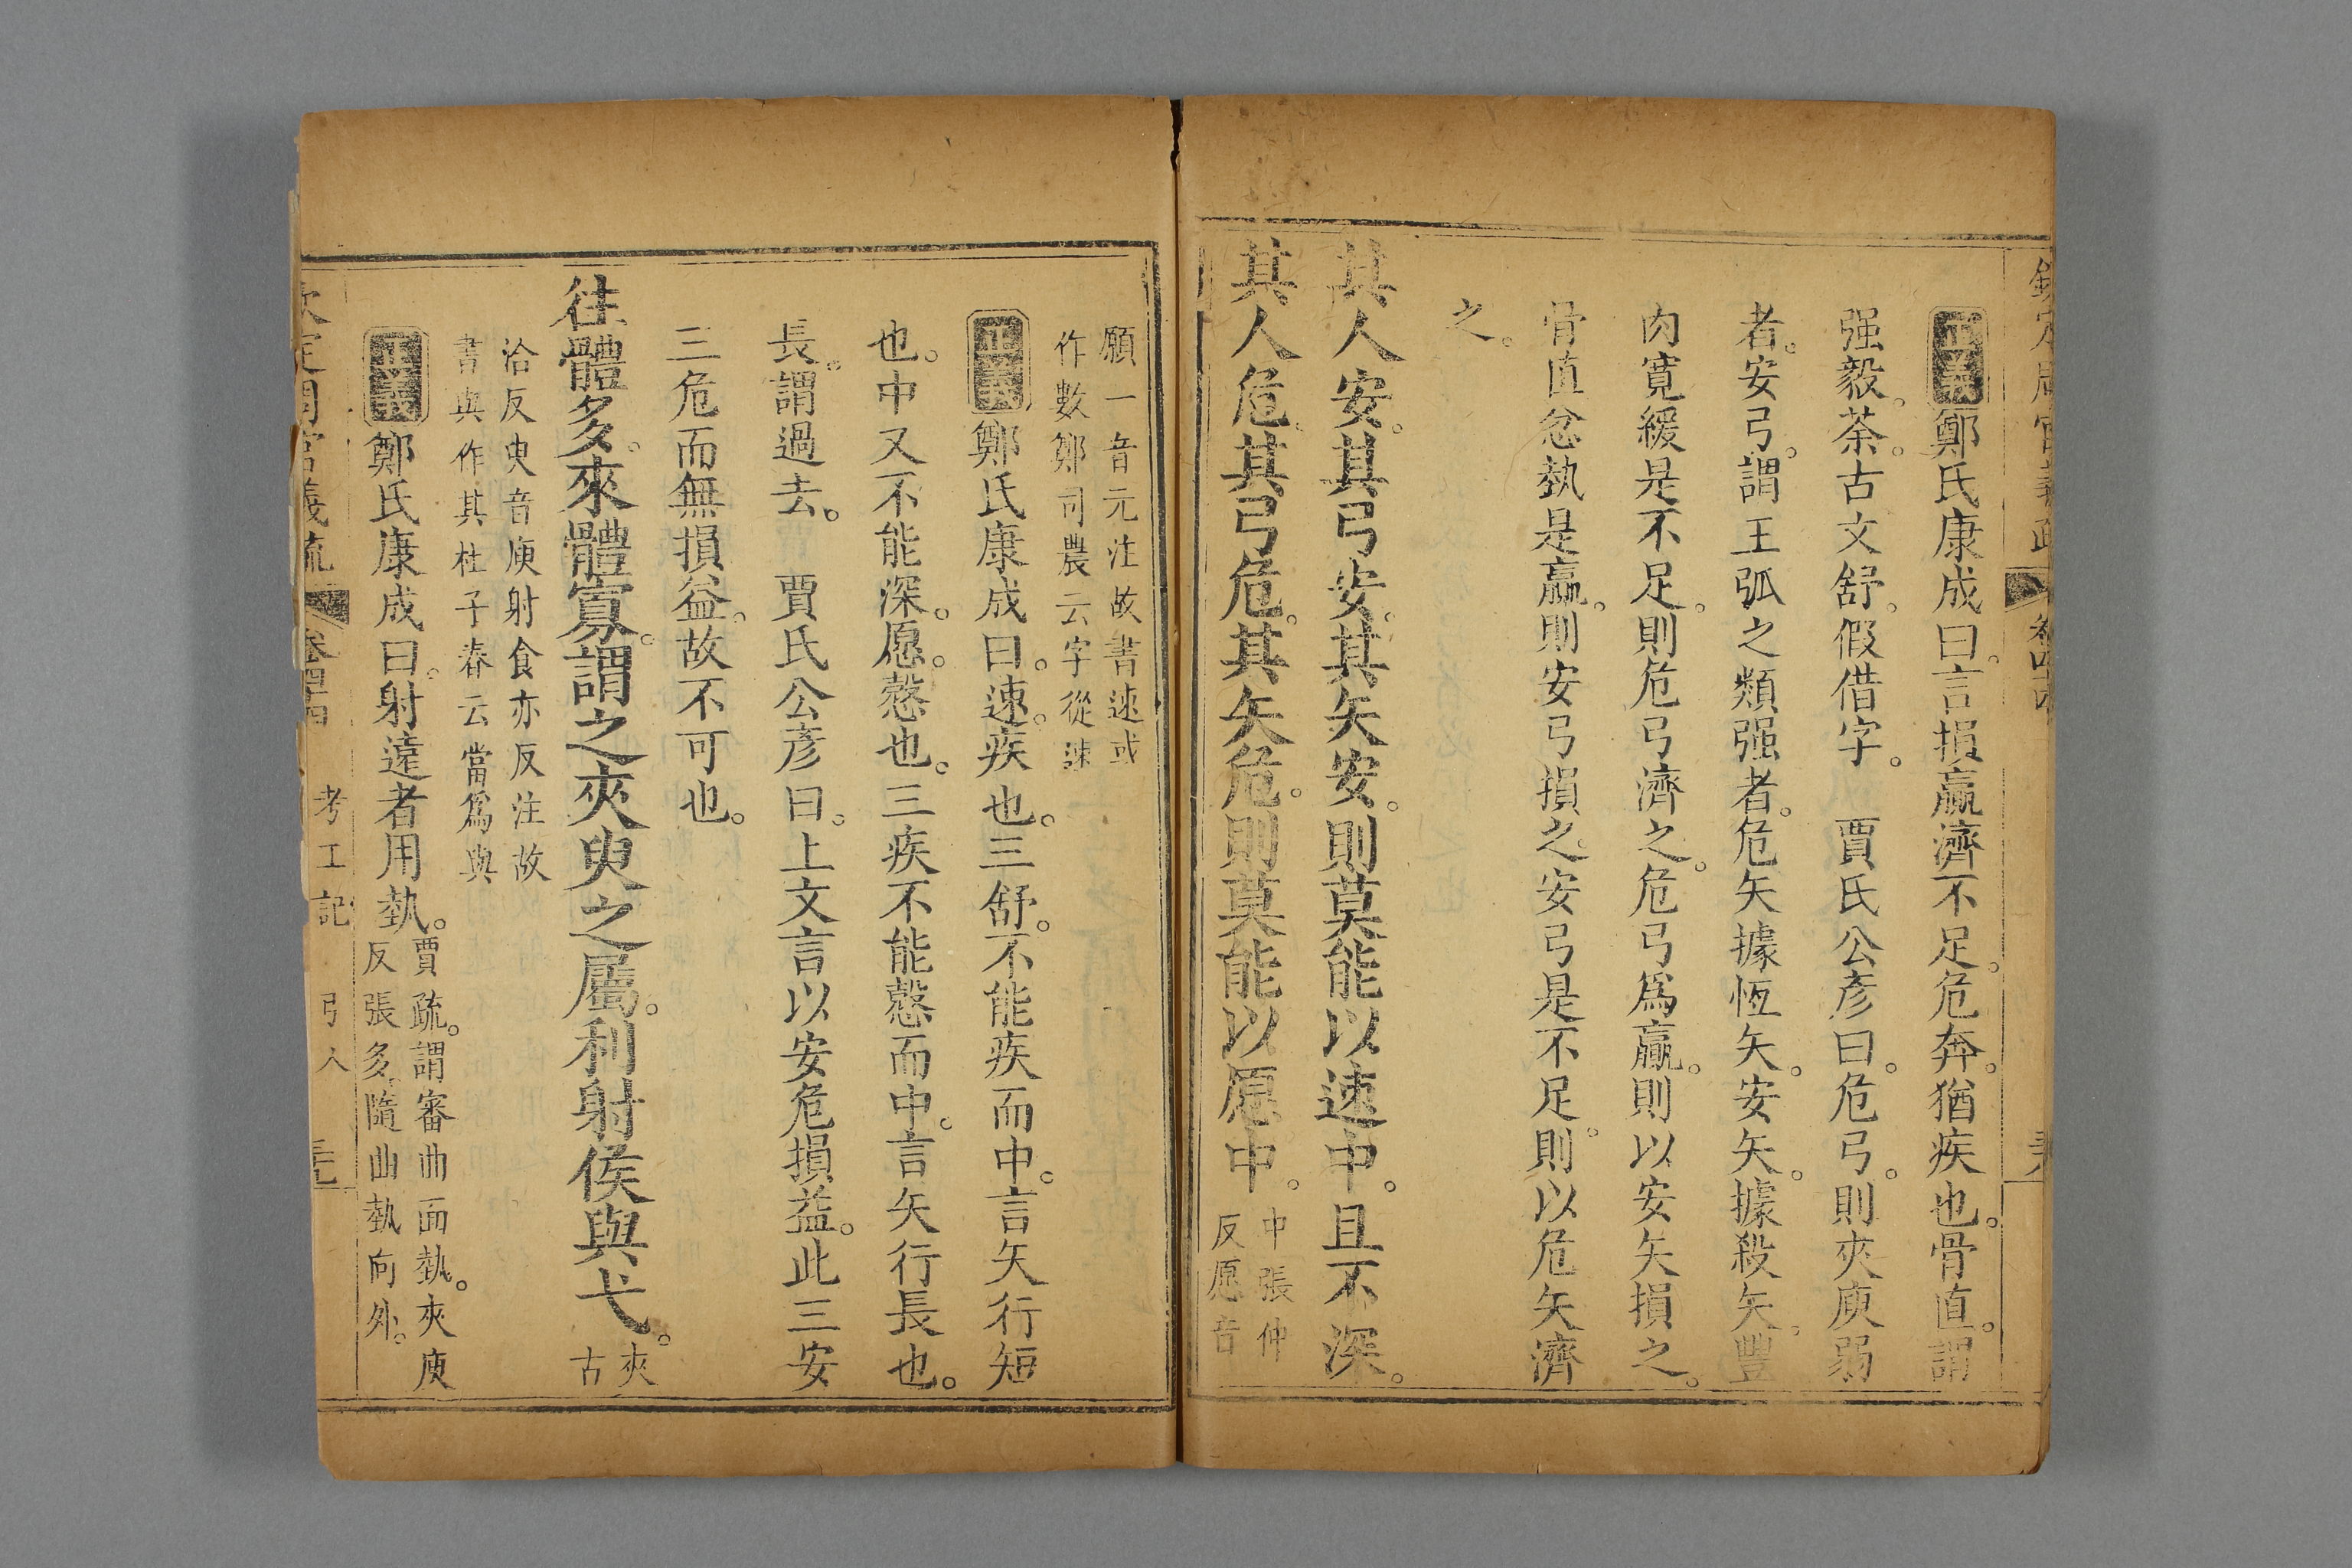 欽定周官義疏 卷四十四
正義鄭氏康成曰。言損贏濟不足。危奔。猶疾也。骨直。謂
强毅。荼。古文舒。假借字。 賈氏公彥曰。危弓。則夾庾弱
者。安弓。謂王弧之類强者。危矢據恆矢。安矢。據殺矢。豐
肉寬緩是不足。則危弓濟之。危弓爲贏。則以安矢損之。
骨直忿埶是贏。則安弓損之。安弓是不足。則以危矢濟
之。
其人安。其弓安。其矢安。則莫能以速中。且不深。
其人危。其弓危。其矢危。則莫能以愿中。
中張仲
反愿音
願一音元注故書速或
作數鄭司農云字從速
正義鄭氏康成曰。速。疾也。三舒。不能疾而中。言矢行短
也。中又不能深。愿。慤也。三疾不能慤而中。言矢行長也。
長。謂過去。 賈氏公彥曰。上文言以安危損益。此三安
三危而無損益。故不可也。
往體多。來體寡。謂之夾臾之屬。利射侯與弋。
夾
古
洽反臾音庾射食亦反注故
書與作其杜子春云當爲與
正義鄭氏康成曰。射遠者用埶。
賈疏。謂審曲面埶。夾庾
反張多。隨曲埶向外。
欽定周官義疏 卷四十四 考工記 弓人